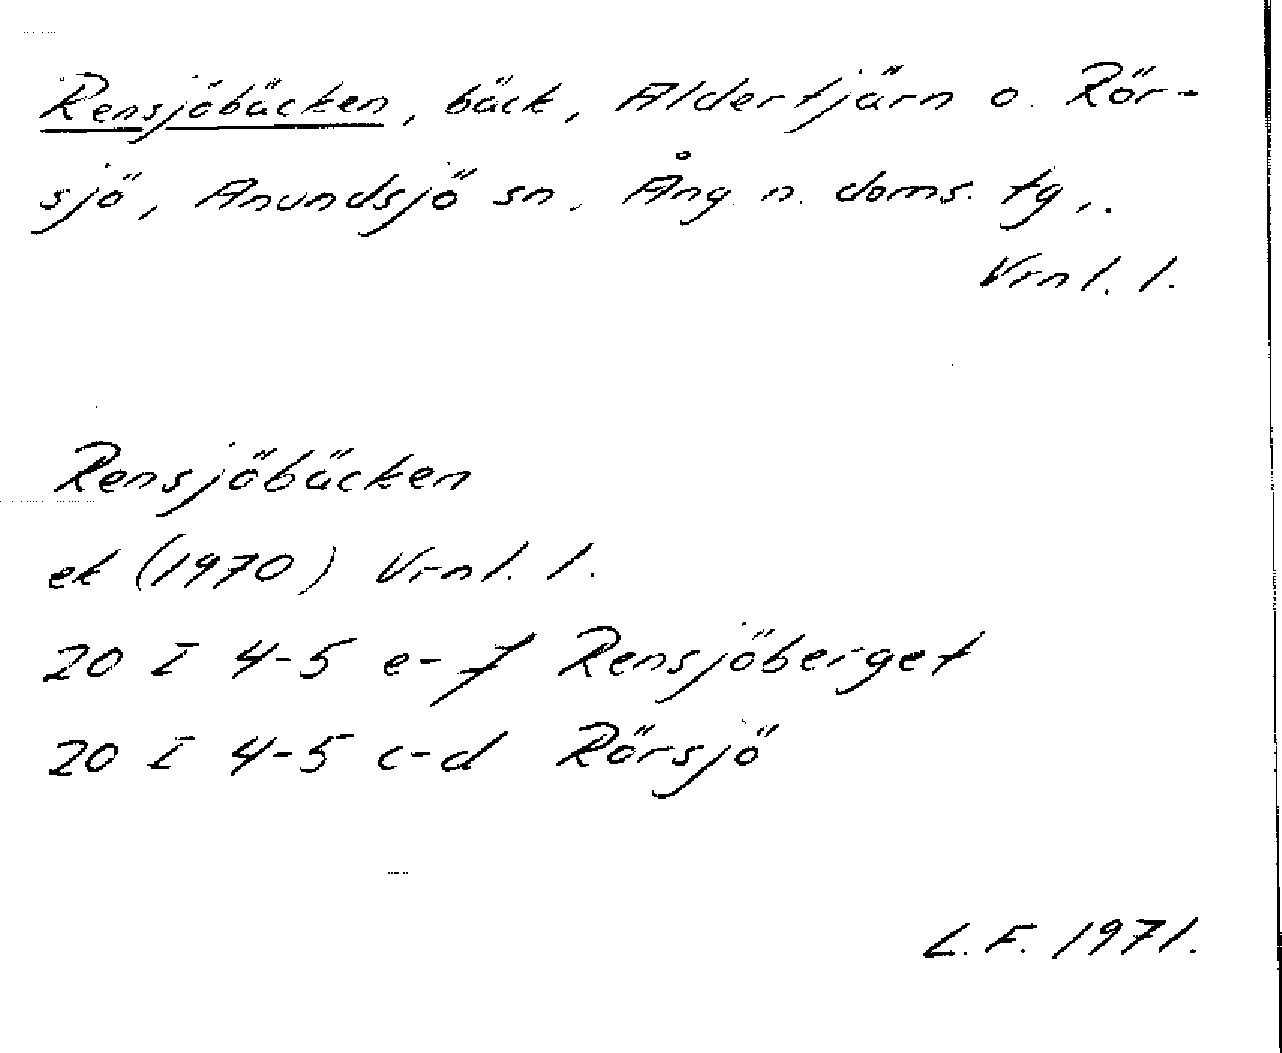 Rensjöbäcken, bäck, Aldertjärn o. Rör-
sjö, Anundsjö sn, Ång. n. doms. tg,.
Vrnl. l.
Rensjöbäcken
ek (1970) Vrnl. l.
20 I 4-5 e-f Rensjöberget
20 I 4-5 c-d Rörsjö
L.F. 1971.